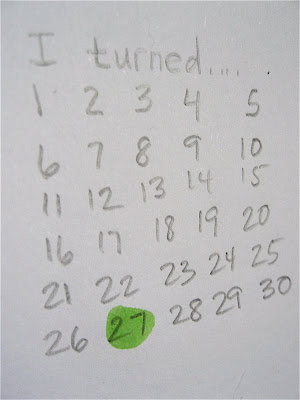 I turned....
1 2 3 4 5
6 7 8 9 10
11 12 13 14 15
16 17 18 19 20
21 22 23 24 25
26 27 28 29 30